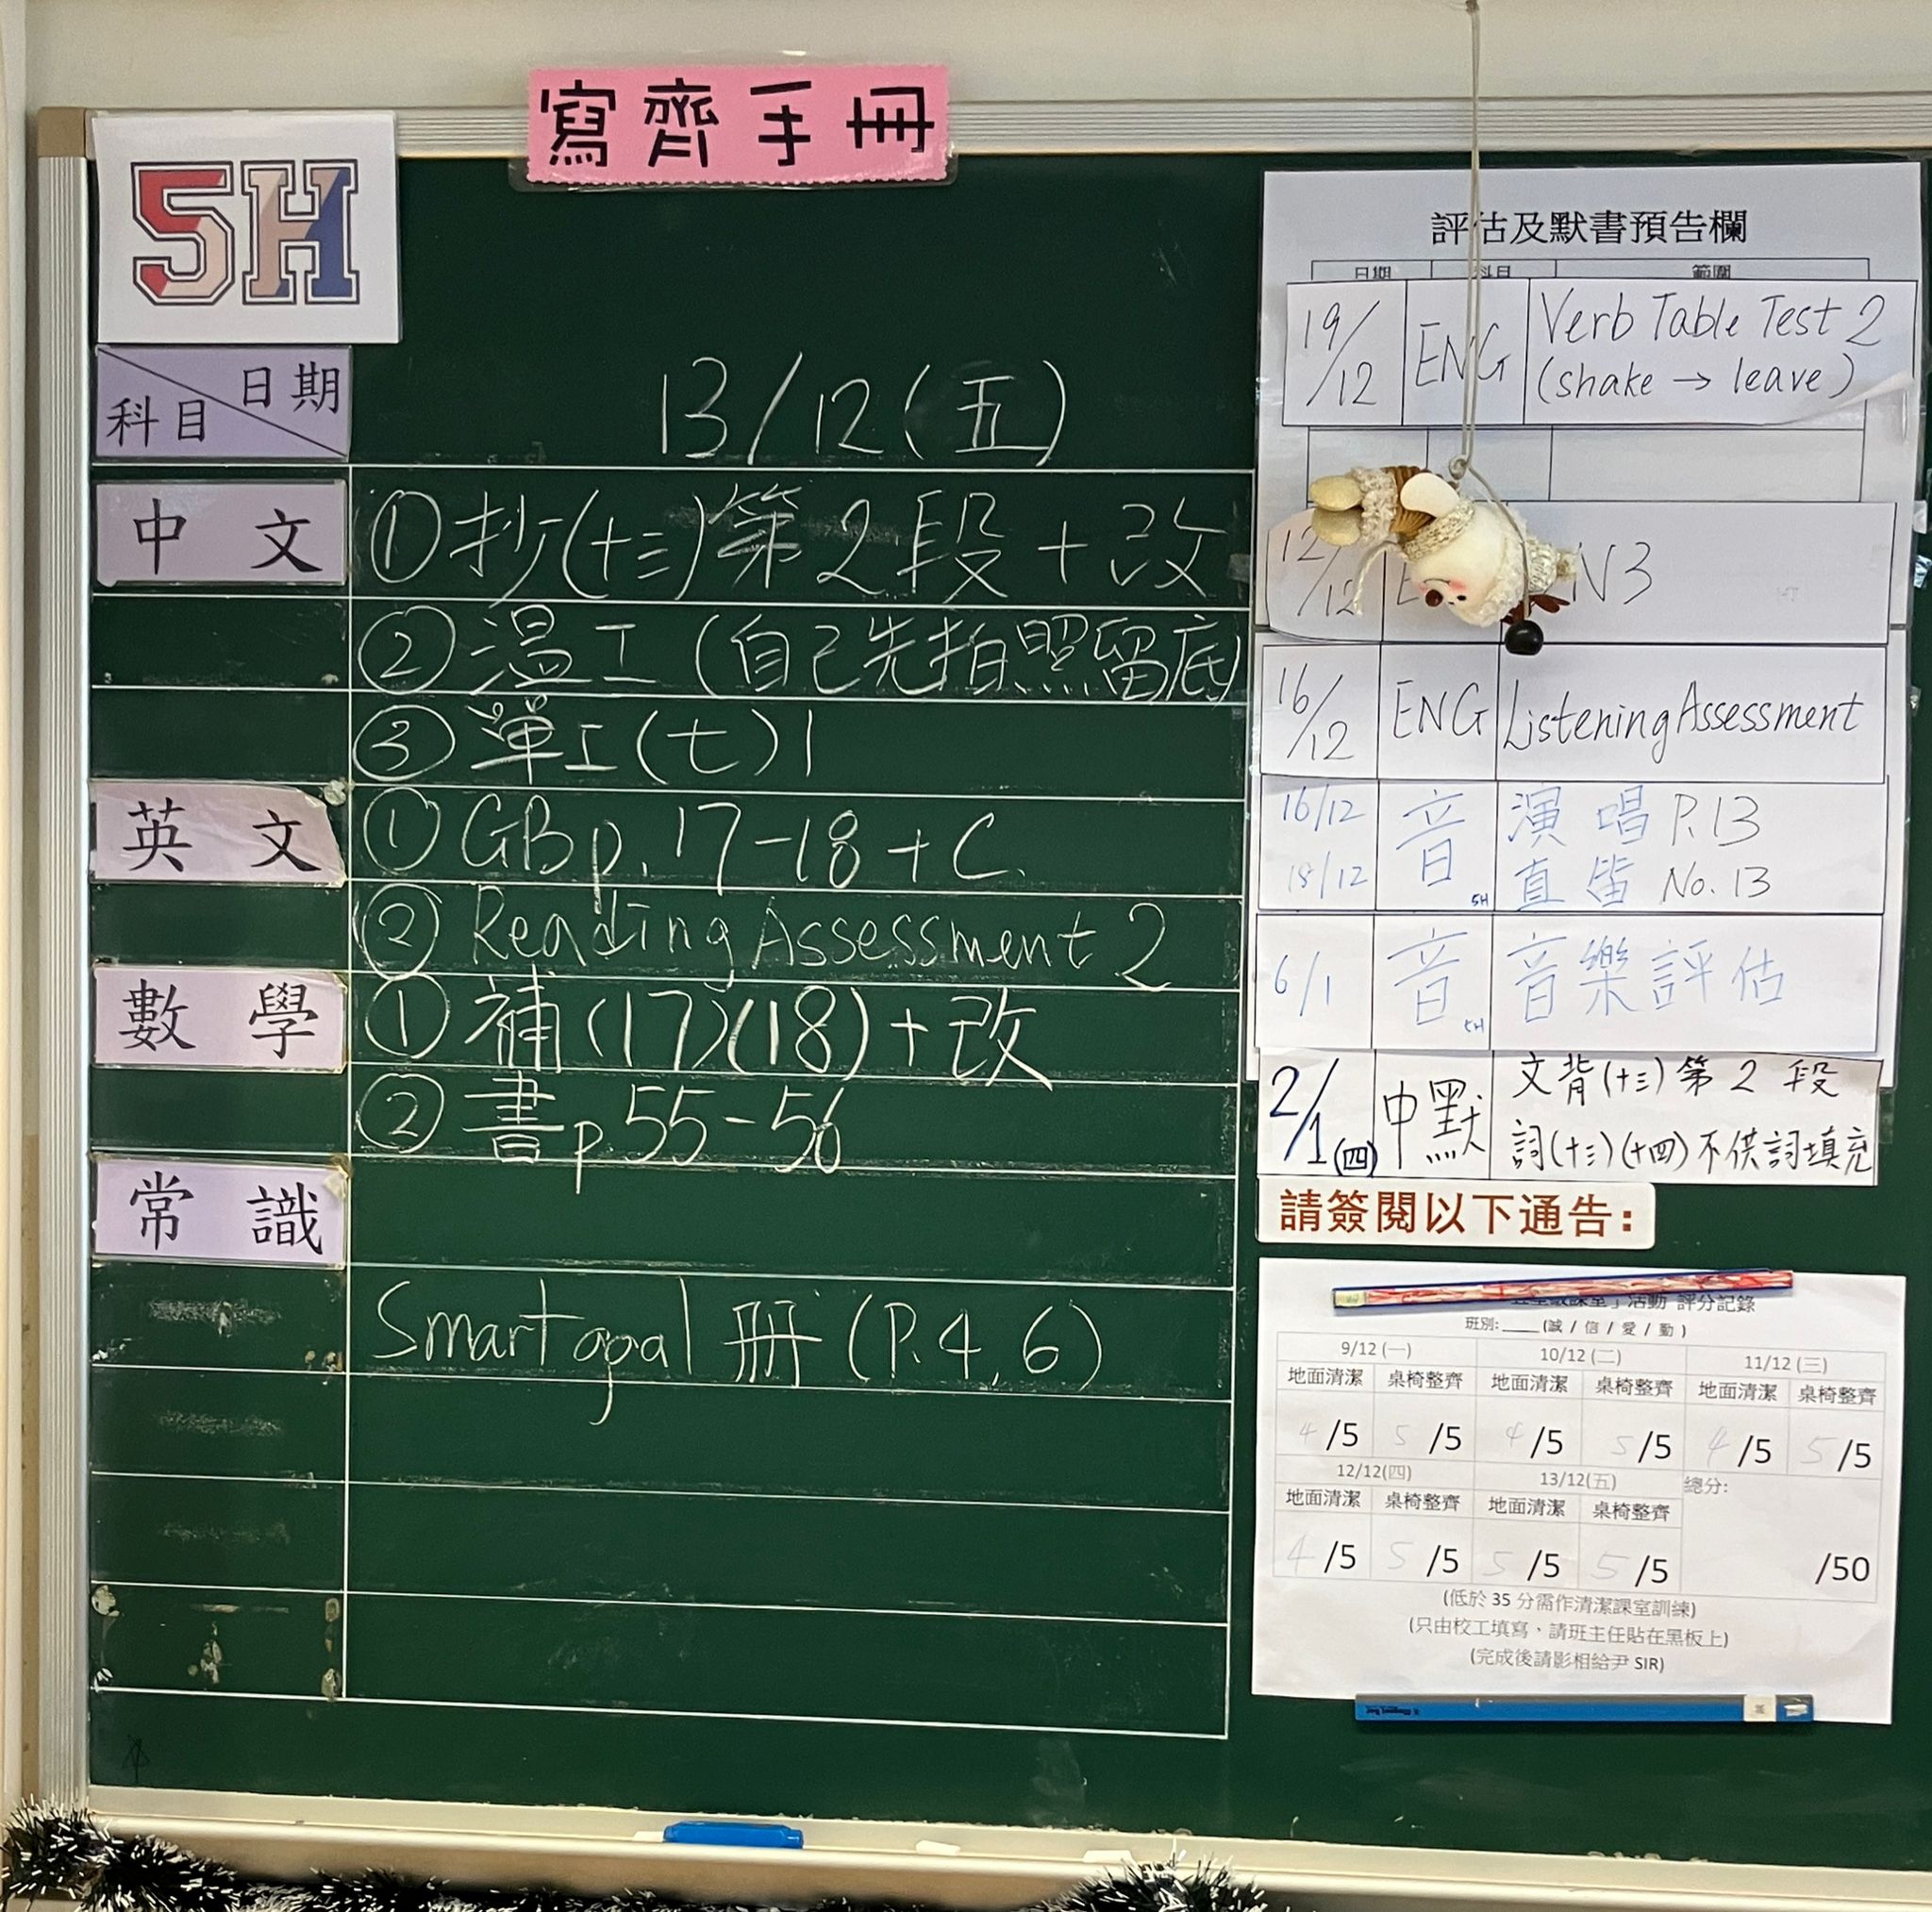 寫齊手冊
5H
日期
科目
13/12(五)
中文
①抄(十三)第2段+改
②溫工(自己先拍照留底)
③單工(七)1
英文
①GB p.17-18+C.
②Reading Assessment 2
數學
①補(17)(18)+改
②書p55-56
常識
Smart goal 冊(P.4,6)
評估及默書預告欄
日期 科目 範圍
19/12 ENG Verb Table Test 2
(shake → leave)
12/12 N3
16/12 ENG Listening Assessment
16/12 音 演唱 P.13
18/12 直笛 No.13
5H
6/1 音 音樂評估
5H
2/1(四) 中默 文背(十三)第2段
詞(十三)(十四)不供詞填充
請簽閱以下通告:
活動 評分記錄
班別:____(誠/信/愛/勤)
9/12(一) 10/12(二) 11/12(三)
地面清潔 桌椅整齊 地面清潔 桌椅整齊 地面清潔 桌椅整齊
4/5 5/5 4/5 5/5 4/5 5/5
12/12(四) 13/12(五) 總分:
地面清潔 桌椅整齊 地面清潔 桌椅整齊
4/5 5/5 5/5 5/5 /50
(低於 35 分需作清潔課室訓練)
(只由校工填寫，請班主任貼在黑板上)
(完成後請影相給尹 SIR)